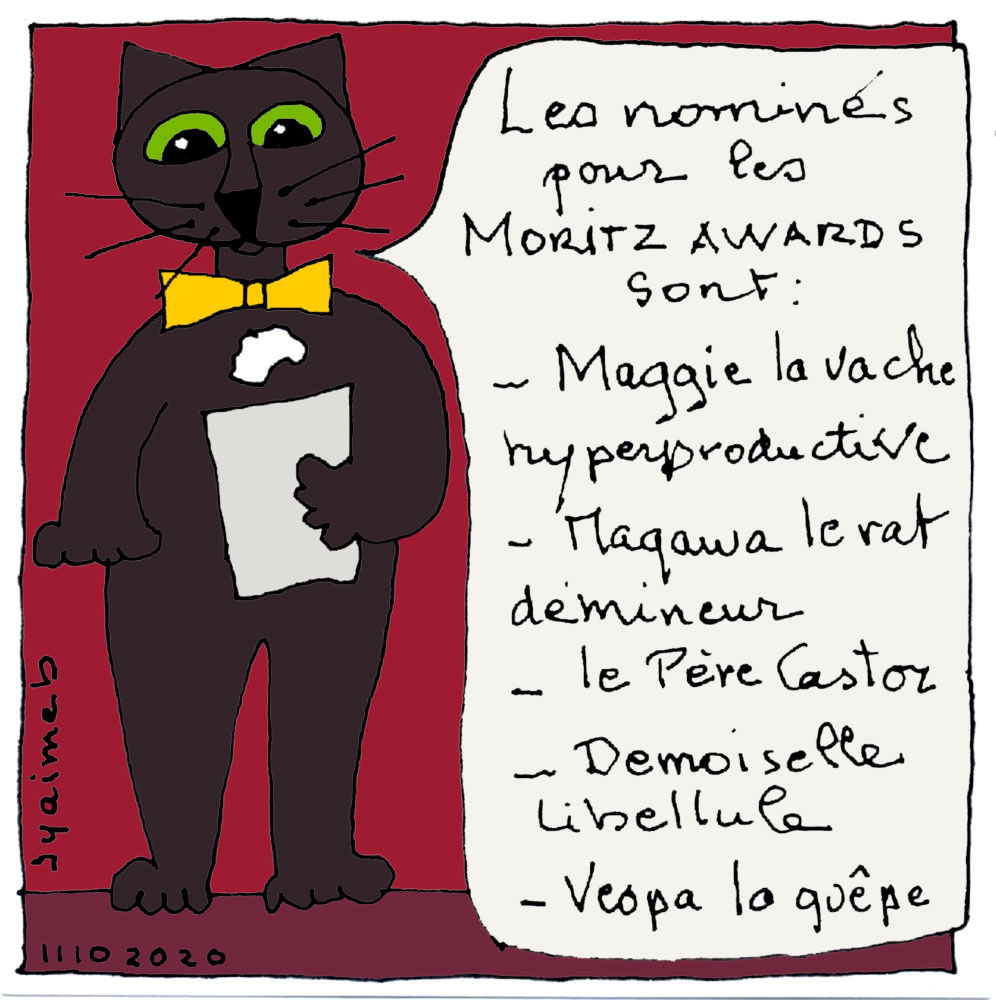 Les nominés
pour les
MORITZ AWARDS
sont:
- Maggie la vache
hyperproductive
- Magawa le rat
démineur
- le Père Castor
- Demoiselle
Libellule
- Vespa la guêpe
syaimeb
11102020